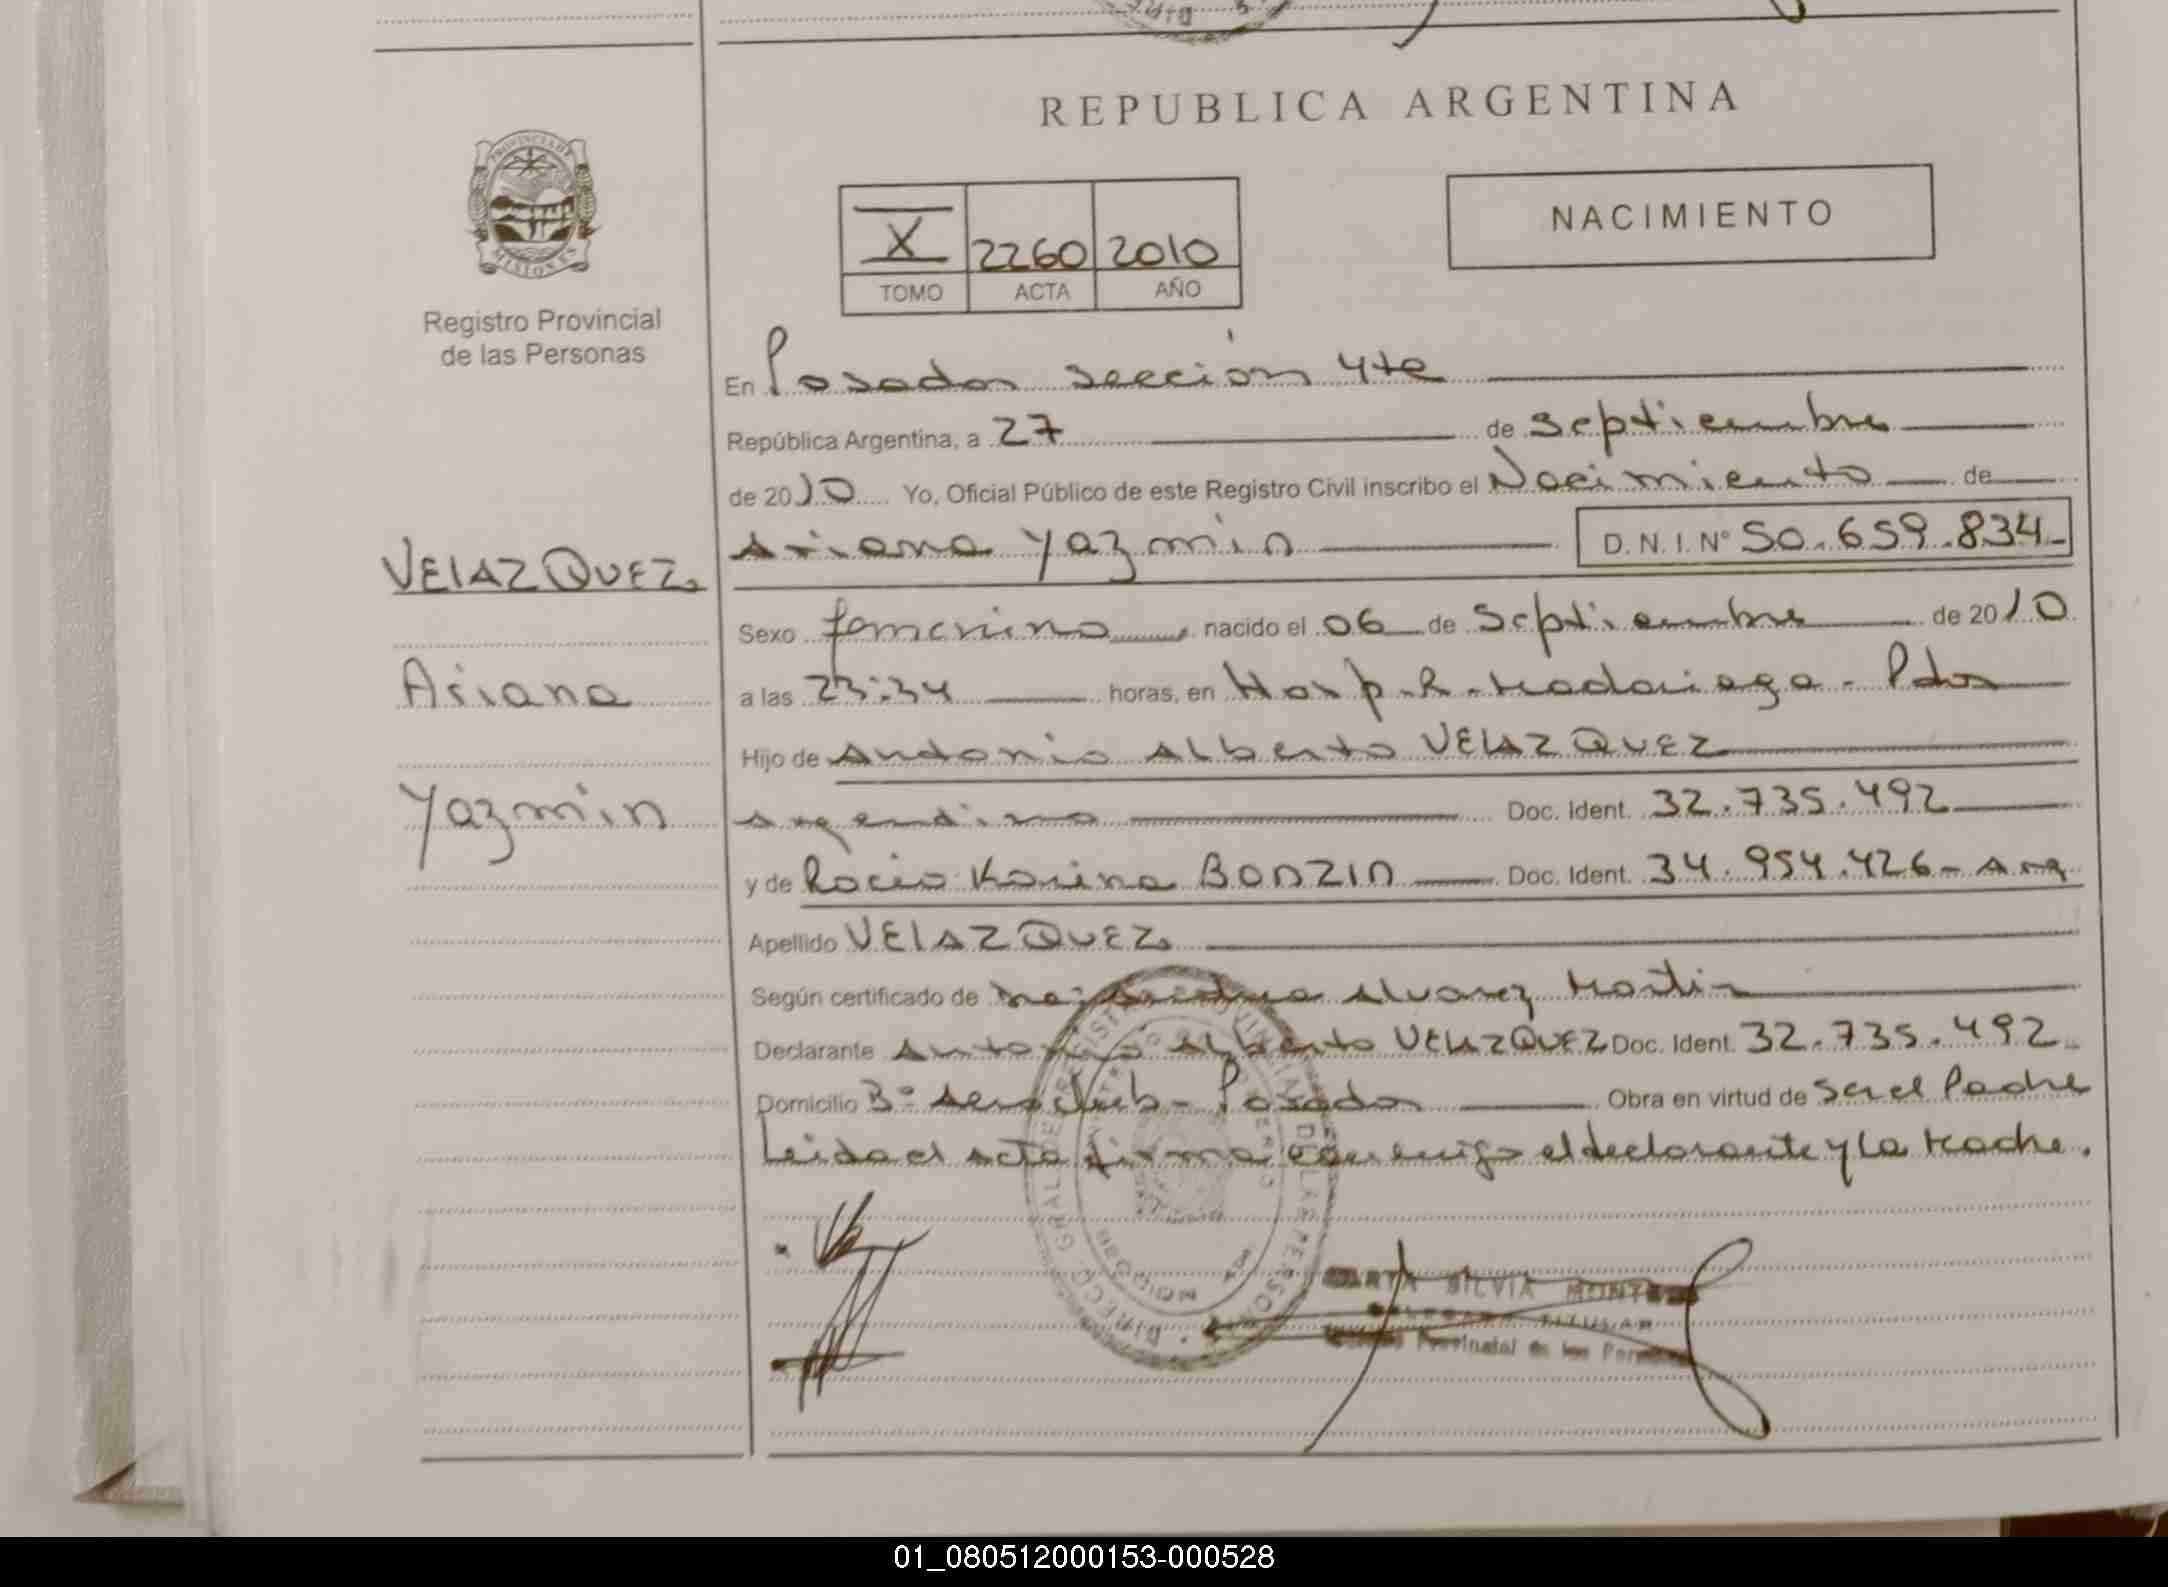 REPUBLICA ARGENTINA
PROVINCIA DE
MISIONES
Registro Provincial
de las Personas
NACIMIENTO
X 2260 2010
TOMO ACTA AÑO
En Posadas sección 4ta
República Argentina, a 27 de Septiembre
de 2010 Yo, Oficial Público de este Registro Civil inscribo el Nacimiento de
VELAZQUEZ
Ariana Yazmin D.N.I.Nº 50.659.834
Sexo femenino nacido el 06 de Septiembre de 2010
Ariana
a las 23:34 horas, en Hosp. R. Madariaga - Pdas
Hijo de Antonio Alberto VELAZQUEZ
Yazmin
argentino Doc. Ident. 32.735.492
y de Rocio Karina BONZIN Doc. Ident. 34.954.426 - Arg
Apellido VELAZQUEZ
Según certificado de Alvarez Martin
Declarante Antonio Alberto VELAZQUEZ Doc. Ident. 32.735.492
Domicilio Bº Aeroclub - Posadas Obra en virtud de Ser el Padre
Leida el acta firma conmigo el declarante y la Madre.
SILVIA
TITULAR
Provincial de las
01_080512000153-000528